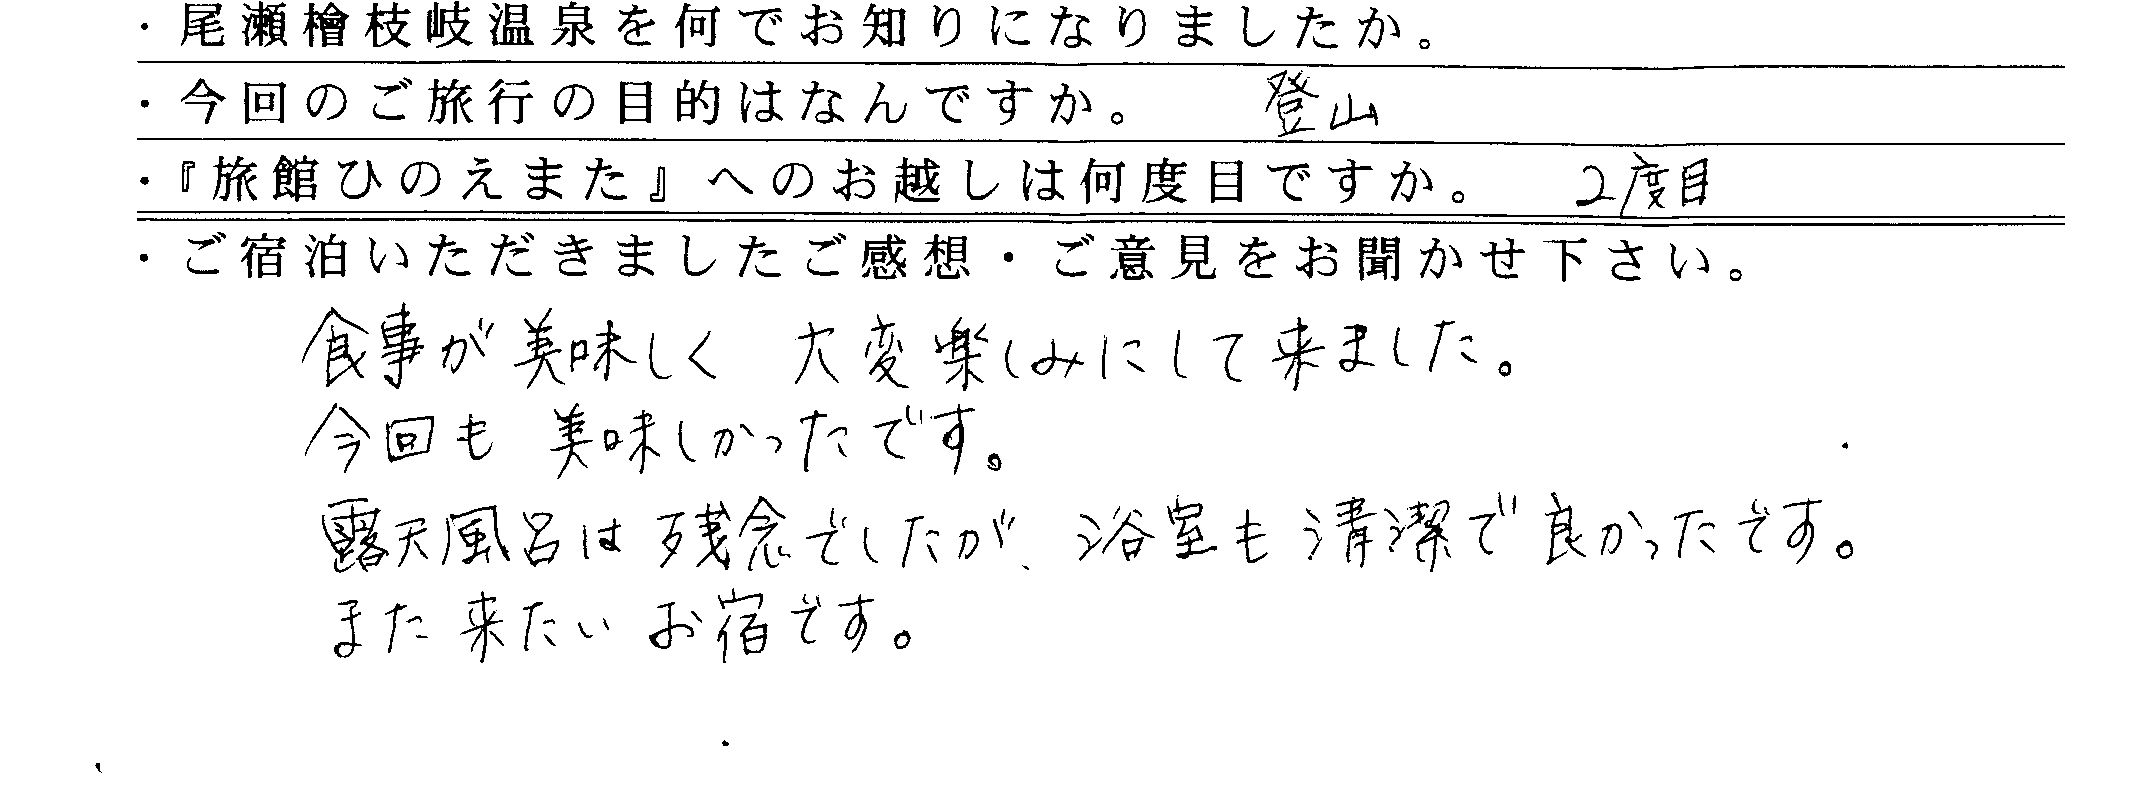 ・尾瀬檜枝岐温泉を何でお知りになりましたか。
・今回のご旅行の目的はなんですか。 登山
・『旅館ひのえまた』へのお越しは何度目ですか。 2度目
・ご宿泊いただきましたご感想・ご意見をお聞かせ下さい。
食事が美味しく 大変楽しみにして来ました。
今回も 美味しかったです。
露天風呂は残念でしたが、浴室も清潔で良かったです。
また来たいお宿です。